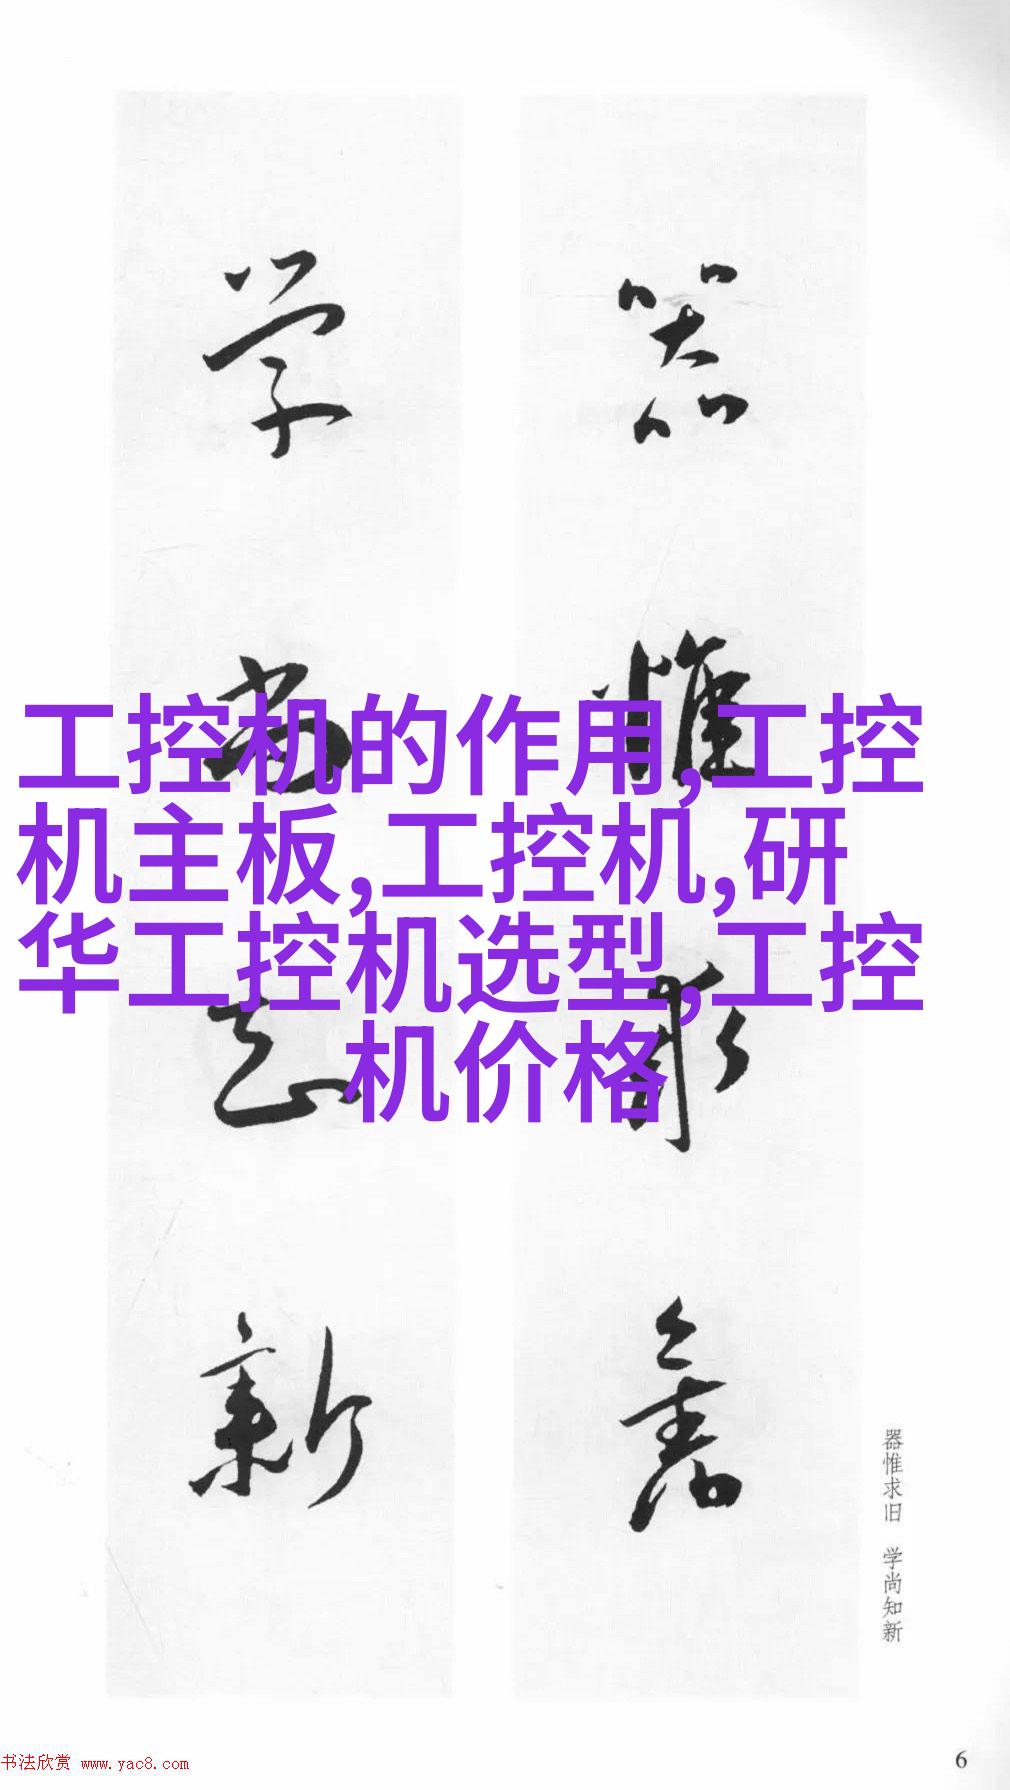 器惟求舊
学尚知新
工控机的作用,工控
机主板,工控机,研
华工控机选型,工控
机价格
器惟求旧 学尚知新
书法欣赏 www.yac8.com
6